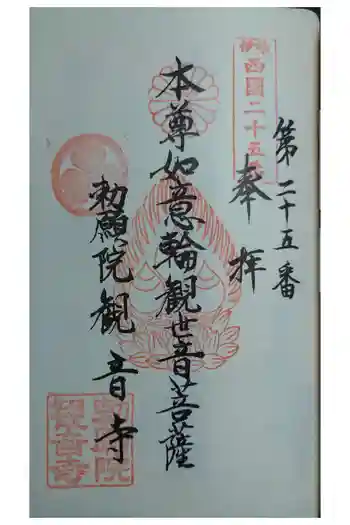 第二十五番
奉拝
本尊如意輪観世音菩薩
勅願院観音寺
西國二十五番